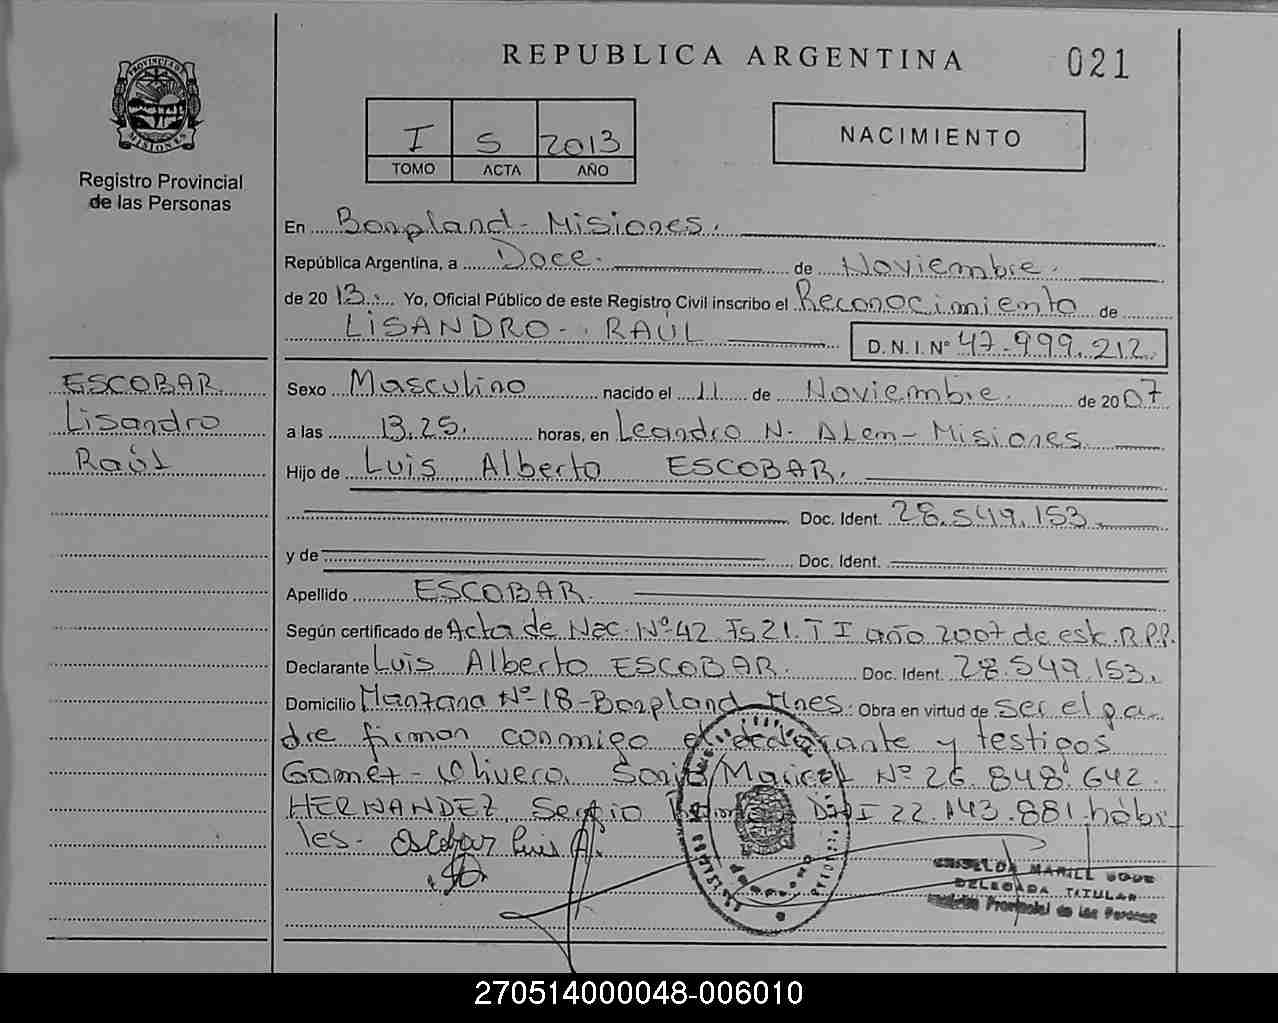 REPUBLICA ARGENTINA
021
PROVINCIA DE
MISIONES
Registro Provincial
de las Personas
I S 2013
TOMO ACTA AÑO
NACIMIENTO
En Bonpland - Misiones.
República Argentina, a Doce. de Noviembre.
de 2013. Yo, Oficial Público de este Registro Civil inscribo el Reconocimiento de
LISANDRO - RAUL D.N.I. Nº 47.999.212.
ESCOBAR
Lisandro
Raúl
Sexo Masculino nacido el 11 de Noviembre. de 2007
a las 13.25. horas, en Leandro N. Alem - Misiones
Hijo de Luis Alberto ESCOBAR.
Doc. Ident. 28.549.153.
y de Doc. Ident.
Apellido ESCOBAR.
Según certificado de Acta de Nac. Nº 42 Fs 21. T I año 2007 de este R.P.P.
Declarante Luis Alberto ESCOBAR. Doc. Ident. 28.549.153.
Domicilio Manzana Nº 18 - Bonpland Mnes. Obra en virtud de ser el pa
dre firman conmigo el declarante y testigos
Gomez - Olivera Sonia Maricel Nº 26.848.642.
HERNANDEZ, Sergio DNI 22.143.881. hábi
les. Escobar Luis A.
DELEGADA TITULAR
Provincial de las Personas
270514000048-006010